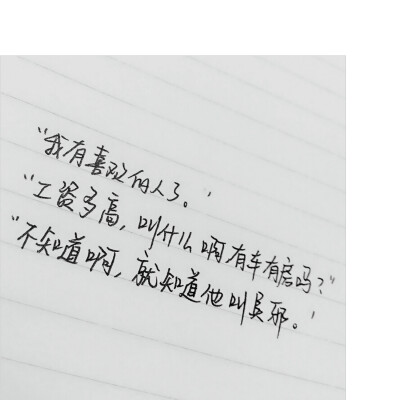 “我有喜欢的人了。”
“工资多高，叫什么啊有车有房吗？”
“不知道啊，就知道他叫吴邪。”